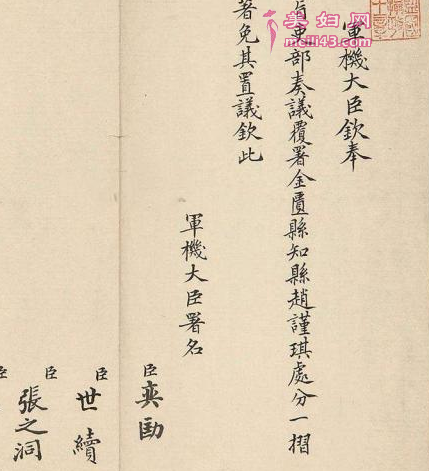 軍機大臣欽奉
旨吏部奏議覆署金匱縣知縣趙謹琪處分一摺
著免其置議欽此
軍機大臣署名
臣奕劻
臣世續
臣張之洞
臣
美妇网